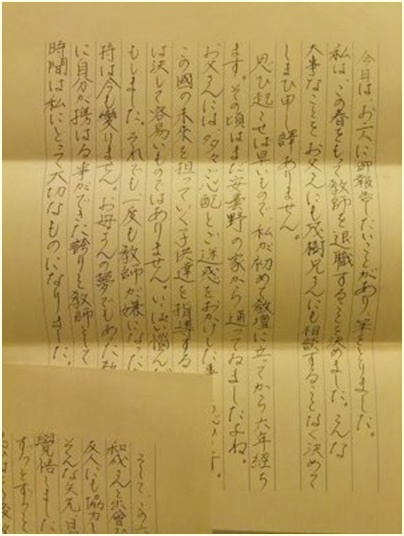 今日は、お二人に御報告したいことがあり筆をとりました。
私は、この春をもって教師を退職することを決めました。そんな
大事なことを、お父さんにも茂樹兄さんにも相談することなく決めて
しまひ申し訳ありません。
思ひ起こせば早いもので、私が初めて教壇に立ってから六年経ち
ます。その頃はまだ安曇野の家から通ってゐましたよね。
お父さんには、多々ご心配とご迷惑をおかけした
この國の未來を担っていく子供達を指導する
は決して容易いものではありません。いっぱい悩ん
もしました。それでも一度も教師が嫌になった
持は今も變りません。お母さんの夢でもあった
に自分が携はる事ができた誇りと教師として
時間は私にとって大切なものになりました。
そしてこの六
和代さんと出會ひ
友人にも協力し
そんな矢先、日
覺悟しました
ずっとずっと